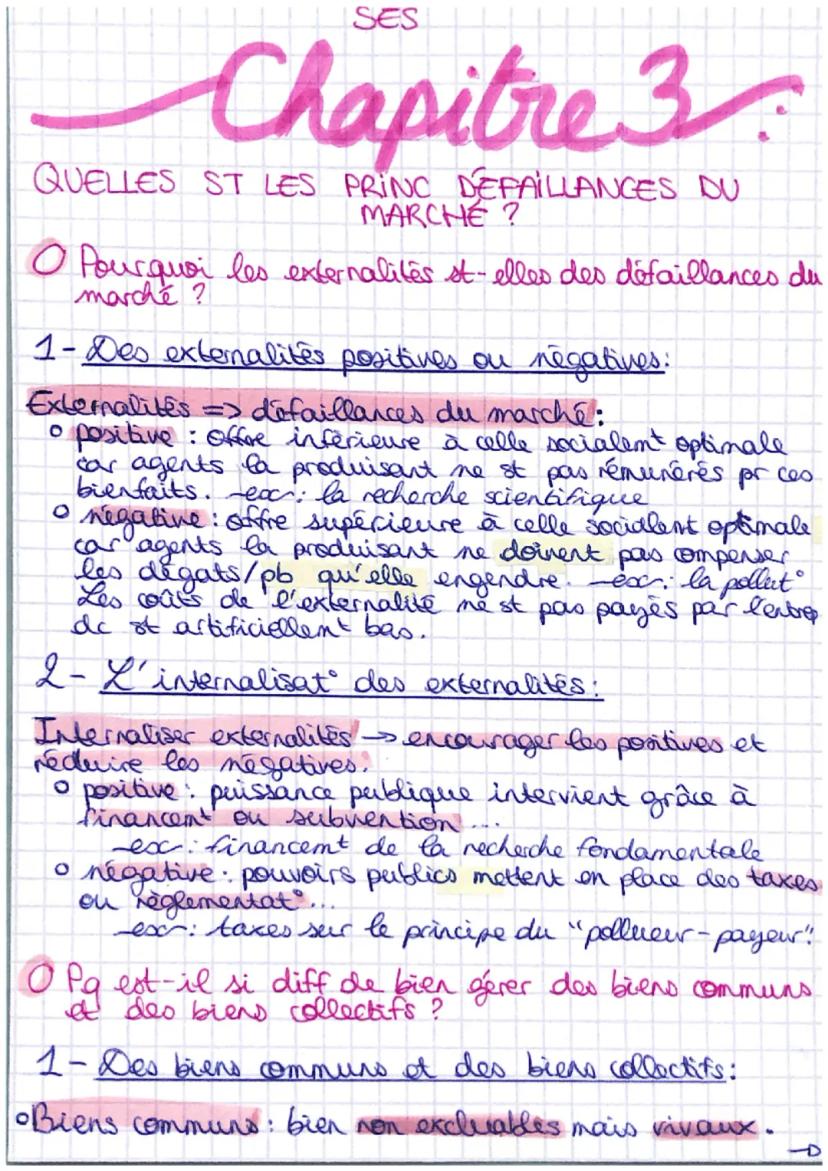 SES
Chapitre 3 :
QUELLES ST LES PRINC DÉFAILLANCES DU
MARCHÉ ?
O Pourquoi les externalités st-elles des défaillances du
marché ?
1- Des externalités positives ou négatives :
Externalités => défaillances du marché :
o positive : offre inférieure à celle socialemt optimale
car agents la produisant ne st pas rémunérés pr ces
bienfaits. -ex : la recherche scientifique
o négative : offre supérieure à celle socialemt optimale
car agents la produisant ne doivent pas compenser
les dégats/pb qu'elle engendre. -ex : la pollut°
Les coûts de l'externalité ne st pas payés par l'entrep
dc st artificiellemt bas.
2- L'internalisat° des externalités :
Internaliser externalités -> encourager les positives et
réduire les négatives.
o positive : puissance publique intervient grâce à
financemt ou subvention ...
-ex : financemt de la recherche fondamentale
o négative : pouvoirs publics mettent en place des taxes
ou règlementat° ...
-ex : taxes sur le principe du "pollueur-payeur".
O Pq est-il si diff de bien gérer des biens communs
et des biens collectifs ?
1- Des biens communs et des biens collectifs :
o Biens communs : bien non excluables mais rivaux.
→